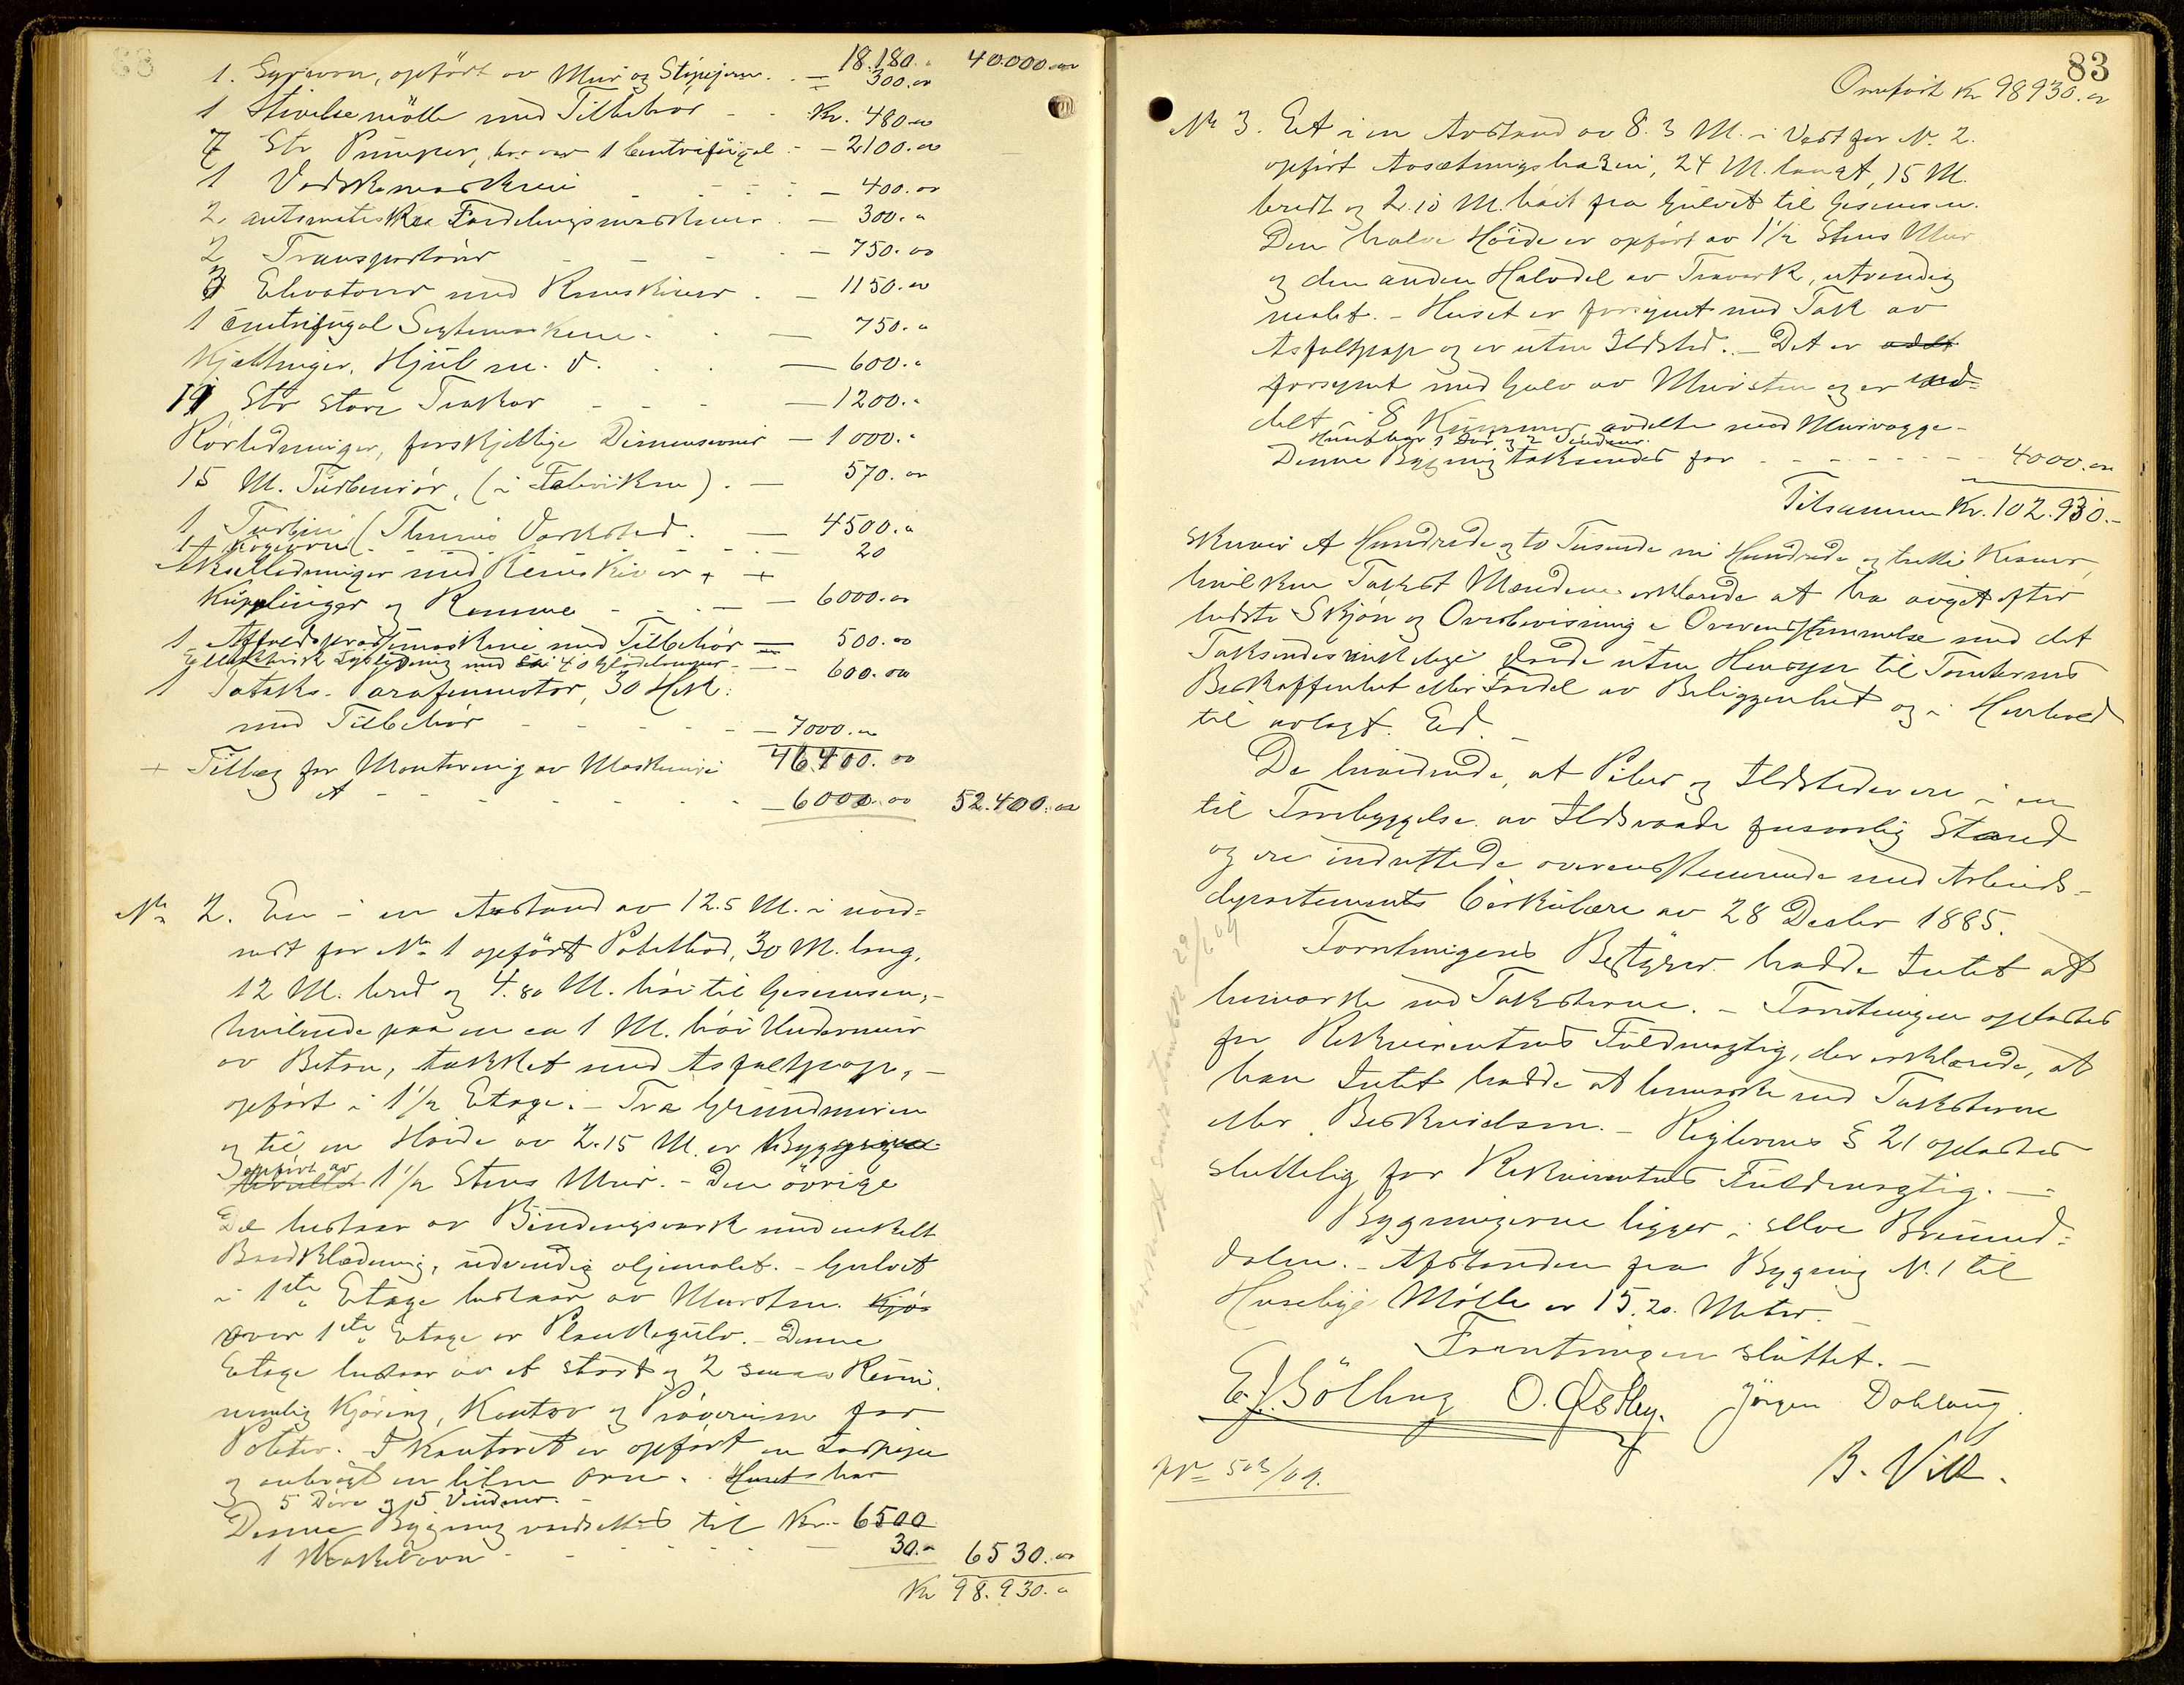 18.180. 40.000.00
1. Syreovn, opført av Mur og Støpejern. — 300.00
1 Stivelsemölle med Tilbehør - - Kr. 480.00
7 Stk Pumper, hvorav 1 Centrifugal - - 2100.00
1 Vadskemaskine - - - - 400.00
2. automatiske Fordelingsmaskiner - — 300.00
2 Transportører - - - — 750.00
3 Elevatorer med Remskiver . — 1150.00
1 Centrifugal Sigtemaskine. - — 750.00
Kjettinger, Hjul m. v. . . — 600.00
19 Stk store Trækar - - - — 1200.-
Rørledninger, forskjellige Dimensioner — 1000.-
15 M. Turbinrør, (i Fabrikken). — 570.00
1 Turbine (Thunes Værksted. — 4500.00
1 Kogeovn - - - - - 20
Akselledninger med Remskiver + +
Kuplinger og Remme - - - — 6000.00
1 Affaldspressemaskine med Tilbehør — 500.00
Ellektrisk Lysledning med 40 Glødelamper - — 600.00
1 Totakts-Parafinmotor, 30 Hk.
med Tilbehør - - - - — 7000.00
46400.00
+ Tillæg for Montering av Maskineri
A - - - - - - — 6000.00 52.400.00
No 2. En i en Avstand av 12.5 M. i nord-
vest for No 1 opført Potetbod, 30 M. lang,
12 M. bred og 4.80 M. høi til Gesimsen,-
hvilende paa en ca 1 M. høi Undermur
av Beton, tækket med Asfaltpap, -
opført i 1½ Etage. - Fra Grundmuren
og til en Høide av 2.15 M. er Bygningen
opført av 1½ Stens Mur. - Den øvrige
Del bestaar av Bindingsværk med enkelt
Bordklædning, udvendig oljemalet. - Gulvet
i 1ste Etage bestaar av Mursten. Kjø-
over 1ste Etage er Plankegulv. - Denne
Etage bestaar av et stort og 2 smaa Rum,
nemlig Kjøring, Kontor og Prøverum for
Poteter. I Kontoret er opført en
og anbragt en liten Ovn. - Huset har
5 Døre og 5 Vinduer. -
Denne Bygning værdsættes til Kr. 6500
1 Kakelovn - - - - - — 30.00 6530.00
Kr 98.930.00
83
Overført Kr 98930.00
No 3. Et i en Avstand av 8.3 M. i Vest for No. 2.
opført Avsætningsbasin, 24 M. langt, 15 M.
bredt og 2.10 M. høit fra Gulvet til Gesimsen.
Den halve Høide er opført av 1½ Stens Mur
og den anden Halvdel av Træverk, utvendig
malet. - Huset er forsynet med Tak av
Asfaltpap og er uten Ildsted. - Det er avdelt
forsynet med Gulv av Mursten og er ind-
delt i 8 Kummer avdelte med Murvægge -
Huset har 1 Dør og 2 Vinduer.
Denne Bygning taksendes for - - - - - - 4000.00
Tilsammen Kr. 102.930.-
skriver Et Hundrede og to Tusende ni Hundrede og tretti Kroner,
hvilken Takst Mændene erklærede at ha avgit efter
bedste Skjøn og Overbevisning i Overensstemmelse med det
Taksendes virkelige Værde uten Hensyn til Tomternes
Beskaffenhet eller Fordel av Beliggenhet og i Henhold
til avlagt Ed. -
De bevidnede, at Piber og Ildsteder ere i en
til Forebyggelse av Ildsvaade forsvarlig Stand
og ere indrettede overensstemmende med Arbeids-
departements Cirkulære av 28 Decbr 1885.
Forretningens Bestyrer hadde Intet at
bemærke ved Taksterne. - Forretningen oplæstes
for Rekvirentens Fuldmægtig, der erklærede, at
han Intet hadde at bemærke ved Taksterne
eller Beskrivelsen. - Reglernes § 21 oplæstes
sluttelig for Rekvirentens Fuldmægtig. -
Bygningerne ligger i selve Brumund-
dalen. - Afstanden fra Bygning No. 1 til
Huseby Mølle er 15.20. Meter. -
Forretningen sluttet. -
E. J. Sölling O. Østby. Jörgen Doblaug.
B. Vik.
503/09.